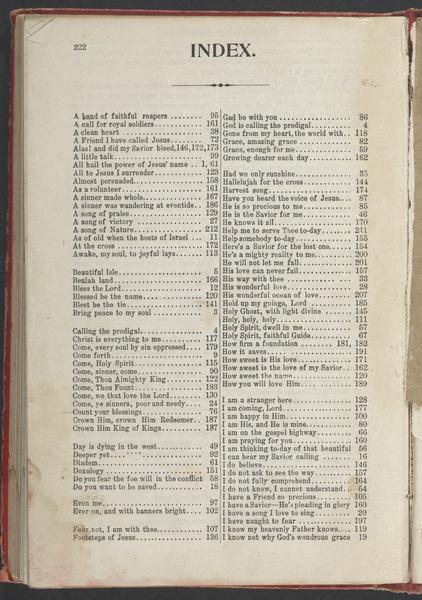 222
INDEX.
A band of faithful reapers ........ 95
A call for royal soldiers............ 161
A clean heart .................... 38
A Friend I have called Jesus........ 72
Alas! and did my Savior bleed,146,172,173
A little talk...................... 99
All hail the power of Jesus' name .. 1, 61
All to Jesus I surrender............ 123
Almost persuaded................. 158
As a volunteer.................... 161
A sinner made whole.............. 167
A sinner was wandering at eventide.. 186
A song of praise.................. 129
A song of victory ................ 27
A song of Nature.................. 212
As of old when the hosts of Israel ... 11
At the cross ..................... 172
Awake, my soul, to joyful lays...... 113
Beautiful Isle..................... 5
Beulah land...................... 166
Bless the Lord.................... 12
Blessed be the name.............. 120
Blest be the tie................... 141
Bring peace to my soul ............ 3
Calling the prodigal................ 4
Christ is everything to me.......... 117
Come, every soul by sin oppressed.... 179
Come forth....................... 9
Come, Holy Spirit................. 115
Come, sinner, come............... 90
Come, Thou Almighty King......... 122
Come, Thou Fount................ 183
Come, we that love the Lord........ 130
Come, ye sinners, poor and needy.... 24
Count your blessings.............. 76
Crown Him, crown Him Redeemer.. 187
Crown Him King of Kings.......... 187
Day is dying in the west............ 49
Deeper yet....................... 92
Diadem.......................... 61
Doxology......................... 151
Do you fear the foe will in the conflict 58
Do you want to be saved........... 18
Even me......................... 97
Ever on, and with banners bright.... 102
Fear not, I am with thee............ 107
Footsteps of Jesus................. 136
God be with you .................. 86
God is calling the prodigal.......... 4
Gone from my heart, the world with.. 118
Grace, amazing grace ............. 82
Grace, enough for me.............. 59
Growing dearer each day........... 162
Had we only sunshine.............. 35
Hallelujah for the cross............ 144
Harvest song..................... 174
Have you heard the voice of Jesus.... 87
He is so precious to me............ 85
He is the Savior for me............. 46
He knows it all.................... 170
Help me to serve Thee to-day....... 211
Help somebody to-day............. 155
Here's a Savior for the lost one...... 154
He's a mighty reality to me......... 200
He will not let me fall.............. 201
His love can never fail............. 157
His way with thee ................ 33
His wonderful love................ 28
His wonderful ocean of love........ 207
Hold up my goings, Lord .......... 185
Holy Ghost, with light divine ...... 145
Holy, holy, holy................... 111
Holy Spirit, dwell in me............ 57
Holy Spirit, faithful Guide.......... 67
How firm a foundation ........ 181, 182
How it saves...................... 191
How sweet is His love.............. 171
How sweet is the love of my Savior.. 162
How sweet the name.............. 120
How you will love Him............ 189
I am a stranger here .............. 128
I am coming, Lord................ 177
I am happy in Him ............... 100
I am His, and He is mine........... 80
I am on the gospel highway........ 66
I am praying for you.............. 160
I am thinking to-day of that beautiful 56
I can hear my Savior calling ....... 16
I do believe...................... 146
I do not ask to see the way......... 157
I do not fully comprehend.......... 164
I do not know, I cannot understand.. 54
I have a Friend so precious......... 105
I have a Savior—He's pleading in glory 160
I have a song I love to sing......... 20
I have naught to fear ............. 197
I know my heavenly Father knows... 119
I know not why God's wondrous grace 19